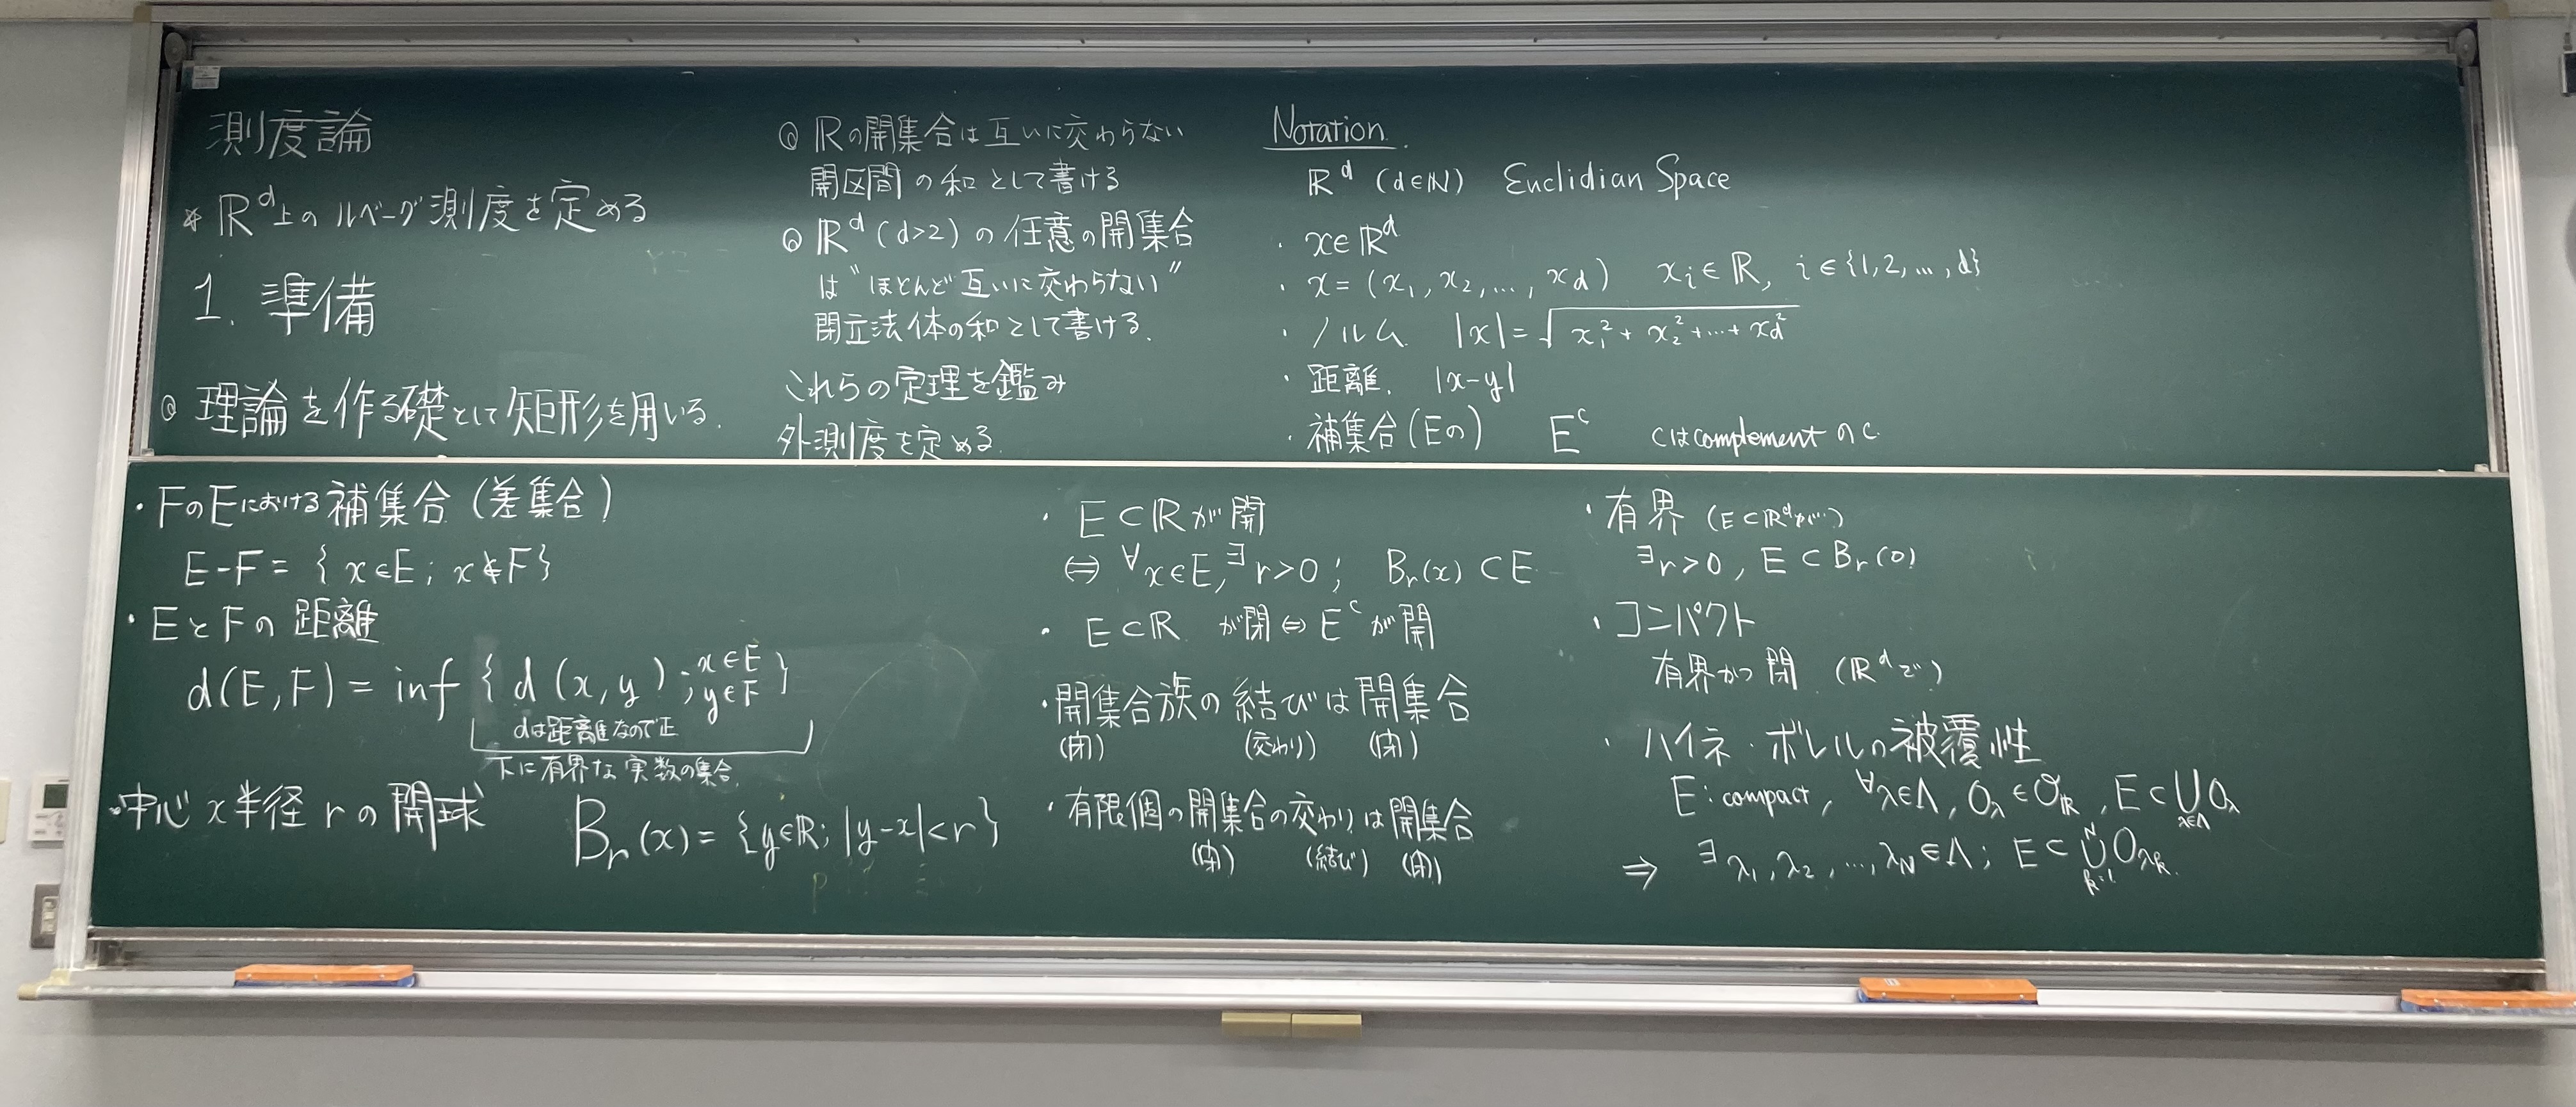 測度論
* ℝ^d上のルベーグ測度を定める
1. 準備
◎ 理論を作る礎として矩形を用いる.
◎ ℝの開集合は互いに交わらない
開区間の和として書ける
◎ ℝ^d (d>2) の任意の開集合
は"ほとんど互いに交わらない"
閉立法体の和として書ける.
これらの定理を鑑み
外測度を定める.
Notation.
ℝ^d (d∈ℕ) Euclidian Space
・ x∈ℝ^d
・ x=(x_1, x_2, ..., x_d) x_i∈ℝ, i∈{1,2,...,d}
・ ノルム |x|=√(x_1^2+x_2^2+…+x_d^2)
・ 距離. |x-y|
・ 補集合(Eの) E^c cはcomplementのc
・FのEにおける補集合 (差集合)
E-F={x∈E; x∉F}
・EとFの距離
d(E,F)=inf{d(x,y); x∈E, y∈F}
dは距離なので正
下に有界な実数の集合.
・中心x半径rの開球 B_r(x)={y∈ℝ; |y-x|<r}
・ E⊂ℝが開
⇔ ∀x∈E, ∃r>0; B_r(x)⊂E
・ E⊂ℝ が閉⇔E^cが開
・開集合族の結びは開集合
(閉) (交わり) (閉)
・有限個の開集合の交わりは開集合
(閉) (結び) (閉)
・有界 (E⊂ℝ^dが…)
∃r>0, E⊂B_r(0)
・コンパクト
有界かつ閉 (ℝ^dで)
・ハイネ・ボレルの被覆性
E: compact, ∀λ∈Λ, O_λ∈𝒪_ℝ, E⊂⋃_{λ∈Λ}O_λ
⇒ ∃λ_1, λ_2, ..., λ_N∈Λ; E⊂⋃_{k=1}^N O_{λ_k}.